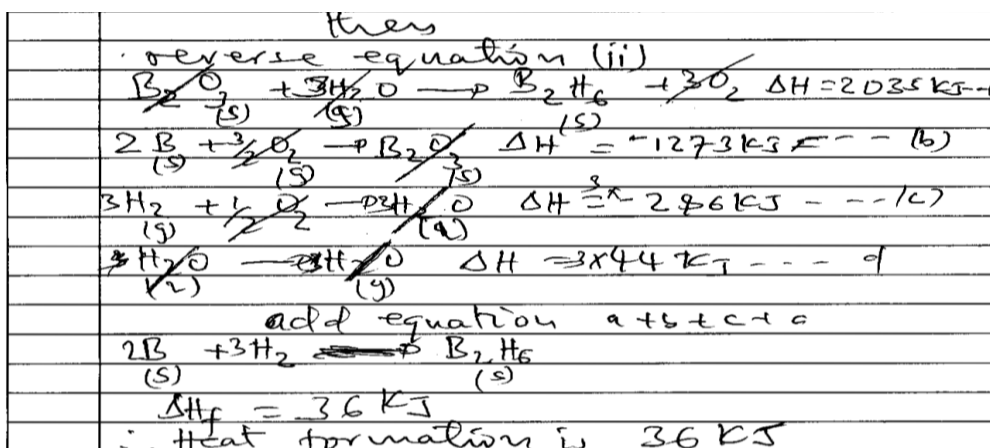 then
. reverse equation (ii)
B2O3(s) + 3H2O(g) → B2H6(s) + 3O2 ΔH = 2035 KJ --
2B(s) + 3/2 O2(g) → B2O3(s) ΔH = -1273 KJ --- (b)
3H2(g) + 1/2 O2 → 3H2O ΔH = 3x-286 KJ - --- (c)
3H2O → 3H2O(g) ΔH = 3x44 KJ --- d
add equation a+b+c+
2B(s) + 3H2 → B2H6(s)
ΔHf = 36 KJ
∴ Heat formation is 36 KJ